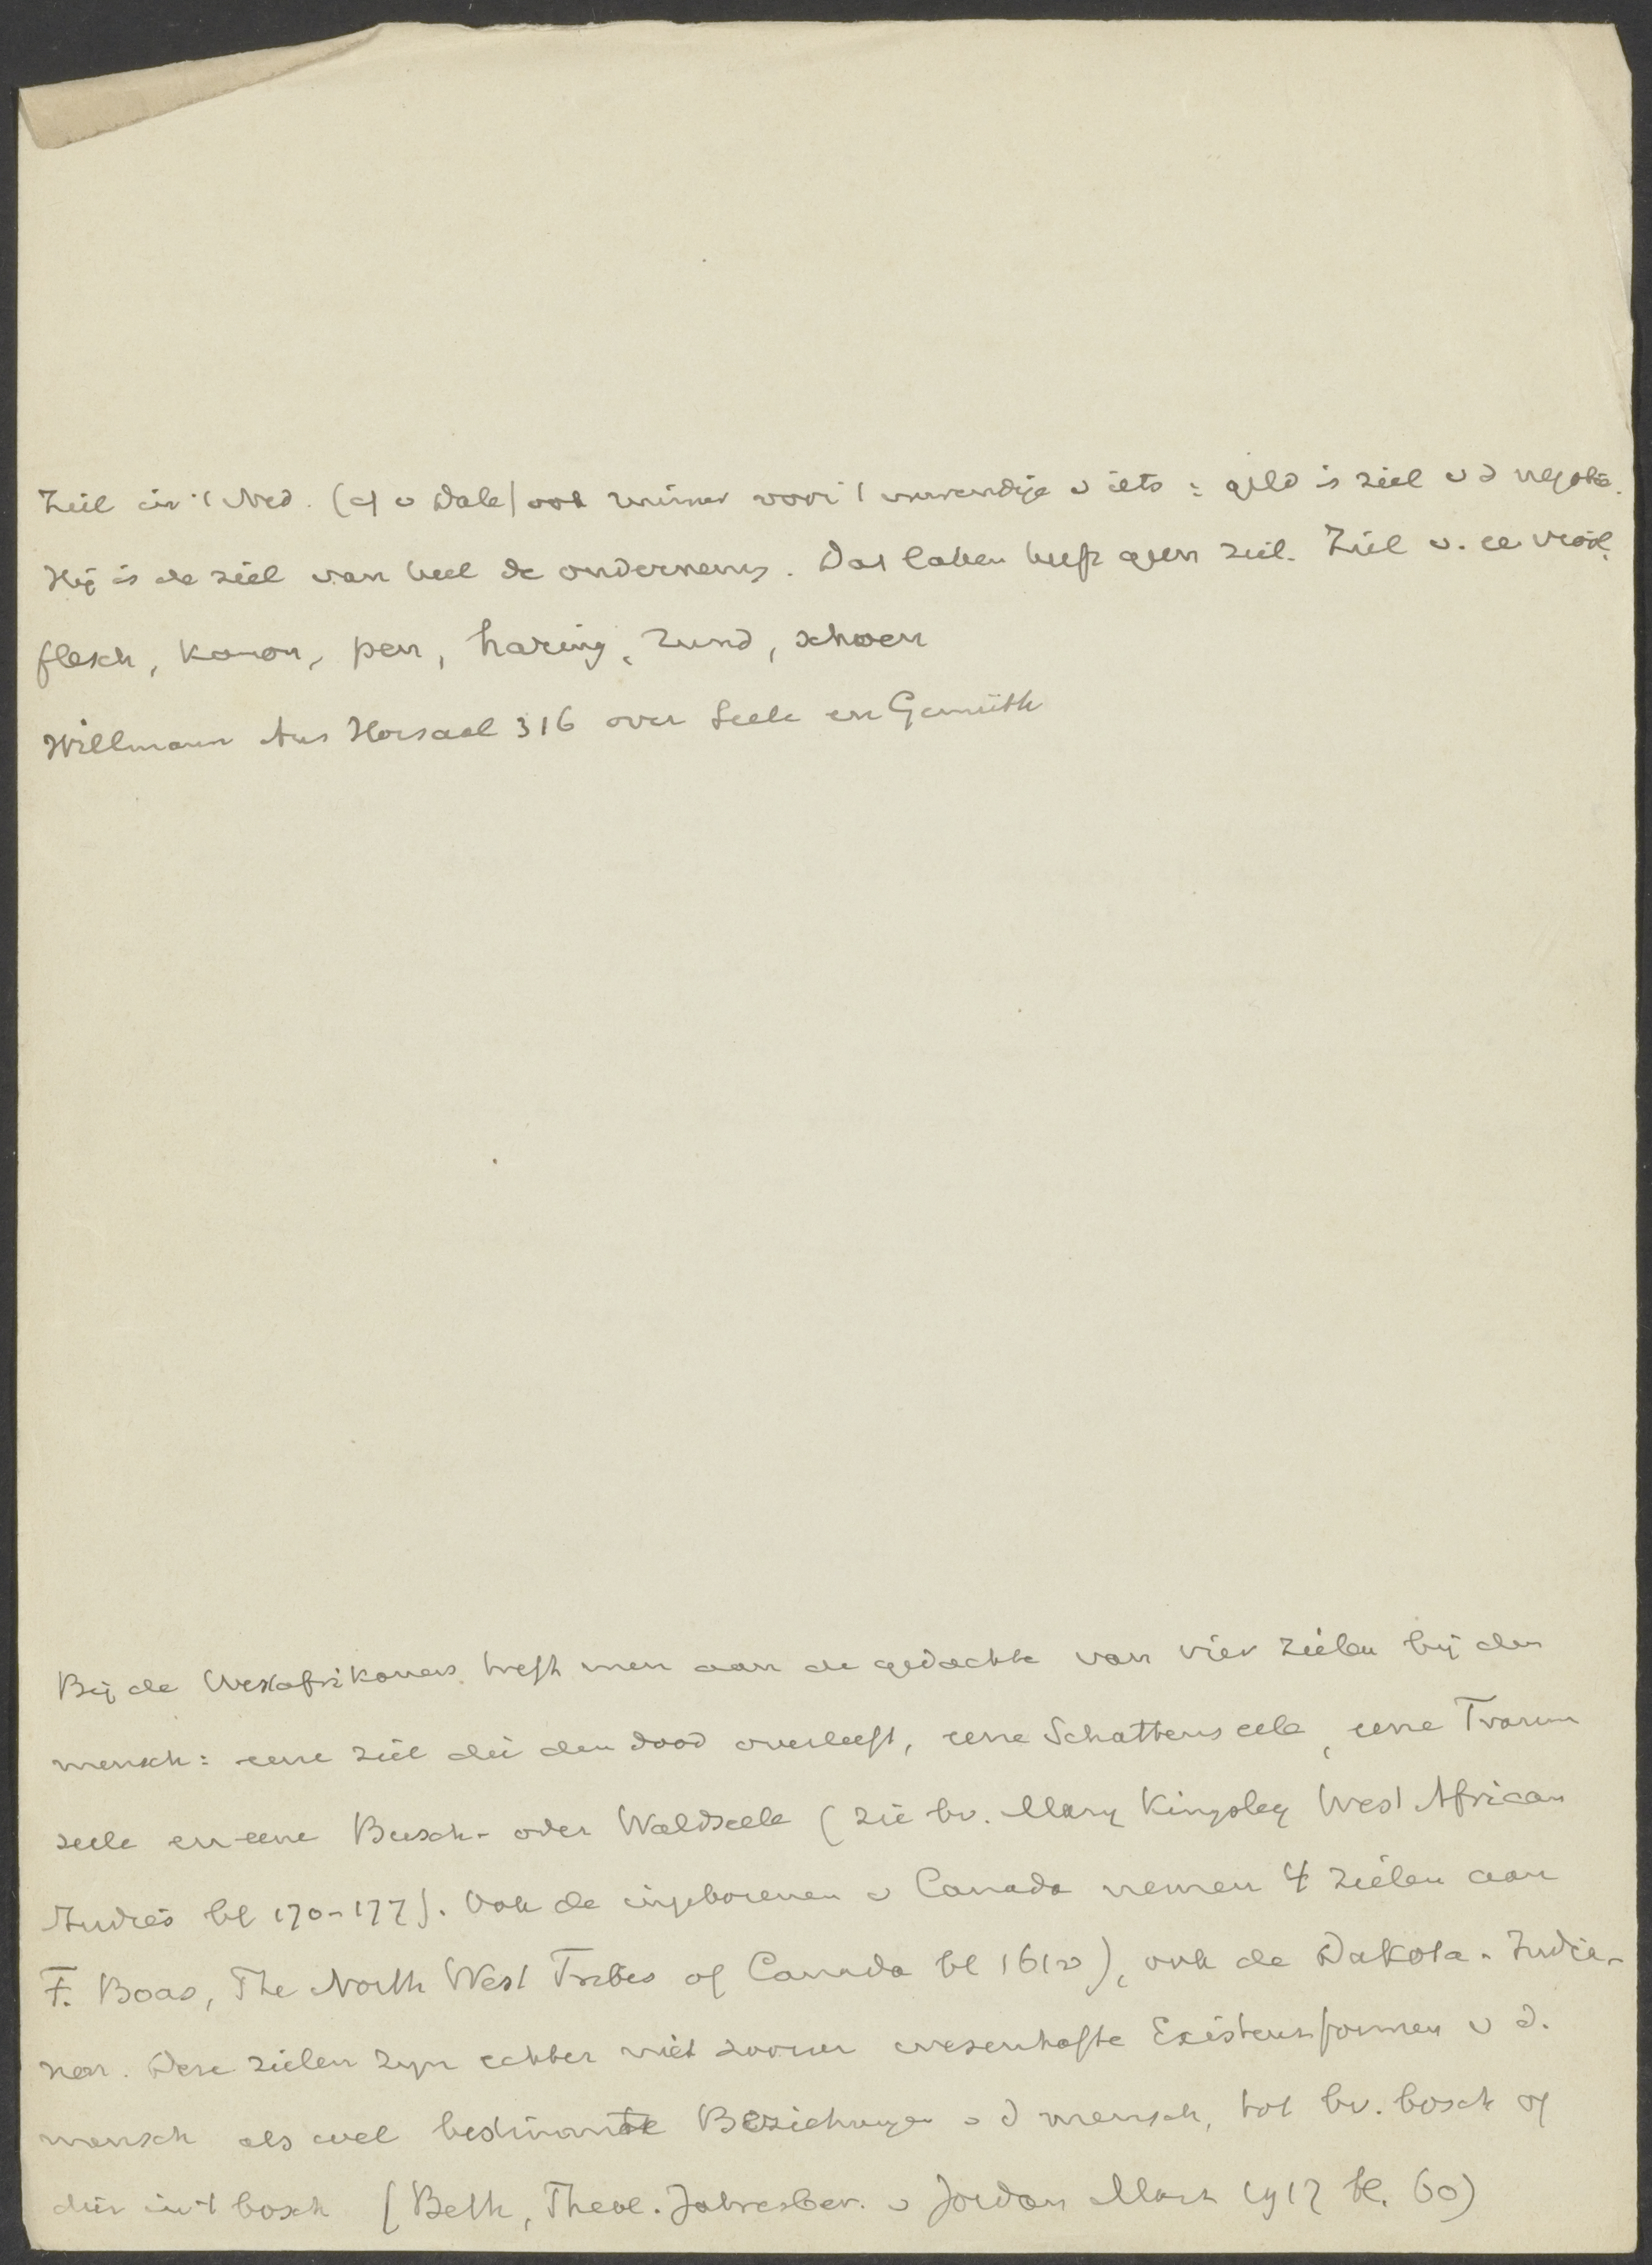 Ziel in 't Ned. (cf v Dale) ook immer voor 't inwendige v iets : geld is ziel v d negotie.
Hij is de ziel van heel de onderneming. Dat laken heeft geen ziel. Ziel v. ee viool,
flesch, kanon, pen, haring, hund, schoen
Willmann Aus Horsaal 316 over Seele en Gemüth
Bij de Westafrikaners treft men aan de gedachte van vier zielen bij den
mensch: eene ziel die den dood overleeft, eene Schattenseele, eene Traum
seele en eene Busch- oder Waldseele (zie bv. Mary Kingsley West African
Studies bl 170-177). Ook de ingeborenen v Canada nemen 4 zielen aan
F. Boas, The North West Tribes of Canada bl), ook de Dakota-Indie-
nen. Deze zielen zyn echter niet zoozeer wesenhafte Existenzformen v d.
mensch als wel bestimmte Beziehungen v d mensch, tot bv. bosch of
dier in 't bosch (Beth, Theol. Jahresber. v Jordan März 1917 bl. 60)